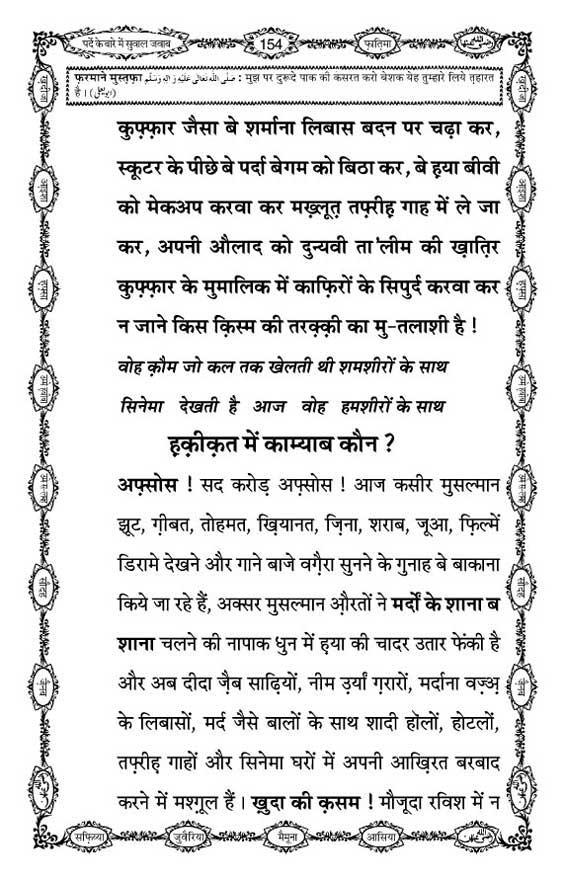 पर्दे के बारे में सुवाल जवाब
154
फ़ातिमा
फ़रमाने मुस्तफ़ा صَلَّى اللهُ تَعَالٰى عَلَيْهِ وَاٰلِهٖ وَسَلَّم : मुझ पर दुरूदे पाक की कसरत करो बेशक येह तुम्हारे लिये त़हारत
है। (ابو یعلی)
कुफ़्फ़ार जैसा बे शर्माना लिबास बदन पर चढ़ा कर,
स्कूटर के पीछे बे पर्दा बेगम को बिठा कर, बे ह़या बीवी
को मेकअप करवा कर मख़्लूत़ तफ़्रीह़ गाह में ले जा
कर, अपनी औलाद को दुन्यवी ता'लीम की ख़ात़िर
कुफ़्फ़ार के मुमालिक में काफ़िरों के सिपुर्द करवा कर
न जाने किस क़िस्म की तरक़्क़ी का मु-तलाशी है !
वोह क़ौम जो कल तक खेलती थी शमशीरों के साथ
सिनेमा देखती है आज वोह हमशीरों के साथ
ह़क़ीक़त में काम्याब कौन ?
अफ़्सोस ! सद करोड़ अफ़्सोस ! आज कसीर मुसल्मान
झूट, ग़ीबत, तोहमत, ख़ियानत, ज़िना, शराब, जूआ, फ़िल्में
डिरामे देखने और गाने बाजे वग़ैरा सुनने के गुनाह बे बाकाना
किये जा रहे हैं, अक्सर मुसल्मान औ़रतों ने मर्दों के शाना ब
शाना चलने की नापाक धुन में ह़या की चादर उतार फेंकी है
और अब दीदा जै़ब साढ़ियों, नीम उ़र्यां ग़रारों, मर्दाना वज़्अ़
के लिबासों, मर्द जैसे बालों के साथ शादी हॉलों, होटलों,
तफ़्रीह़ गाहों और सिनेमा घरों में अपनी आख़िरत बरबाद
करने में मश्ग़ूल हैं। ख़ुदा की क़सम ! मौजूदा रविश में न
सफ़िय्या
जुवैरिया
मैमूना
आसिया